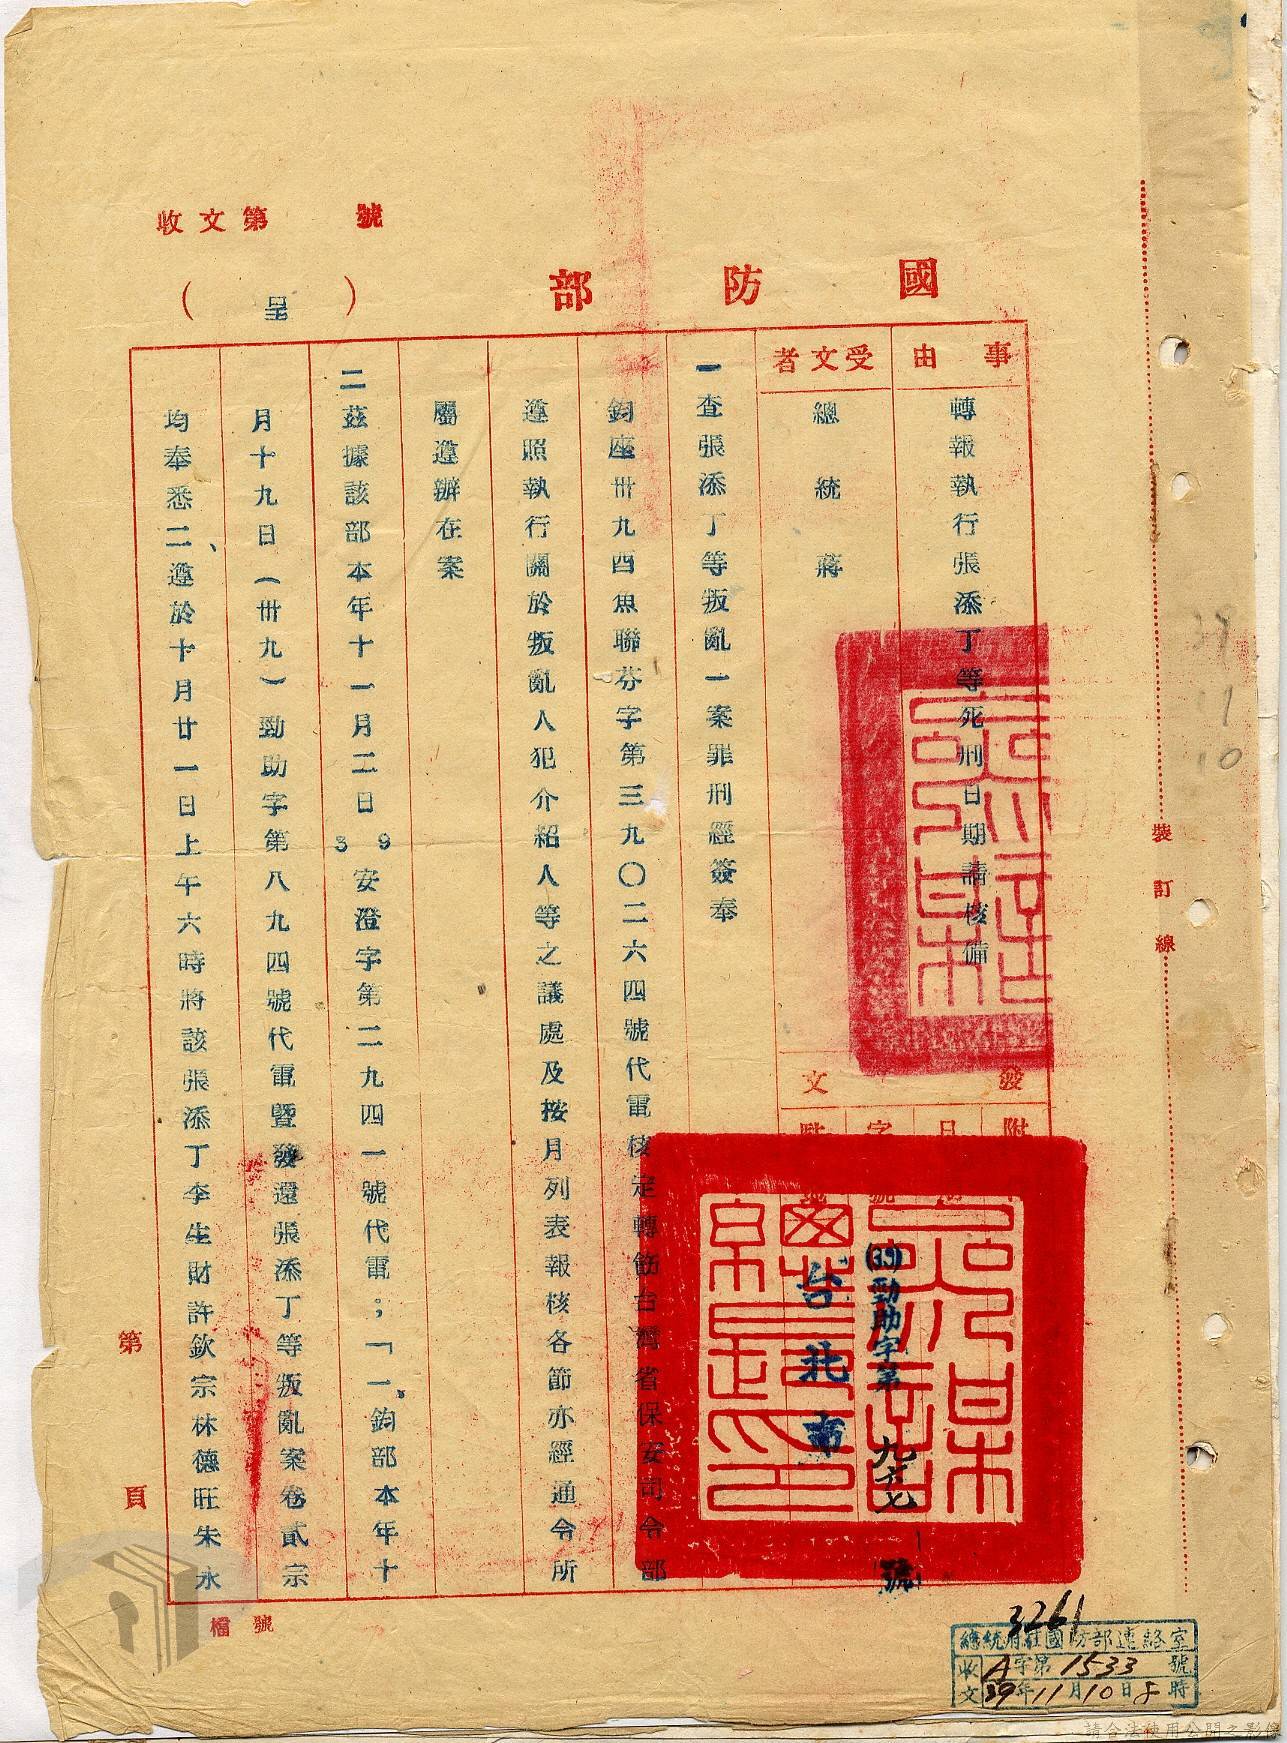 收文第 號
國防部
（呈）
事由
轉報執行張添丁等死刑日期請核備
受文者
總統 蔣
發文
附
日
字
(39)勁助字第九六七號
台北市
一查張添丁等叛亂一案罪刑經簽奉
鈞座卅九酉魚聯芬字第三九〇二六四號代電核定轉飭台灣省保安司令部
遵照執行關於叛亂人犯介紹人等之議處及按月列表報核各節亦經通令所
屬遵辦在案
二茲據該部本年十一月二日39安澄字第二九四一號代電；「一、鈞部本年十
月十九日（卅九）勁助字第八九四號代電暨發還張添丁等叛亂案卷貳宗
均奉悉二、遵於十月廿一日上午六時將該張添丁李生財許欽宗林德旺朱永
第 頁
檔號
裝訂線
39
11
10
3261
總統府駐國防部連絡室
收文 A字第1533號
39年11月10日8時
請合法使用公開之影像